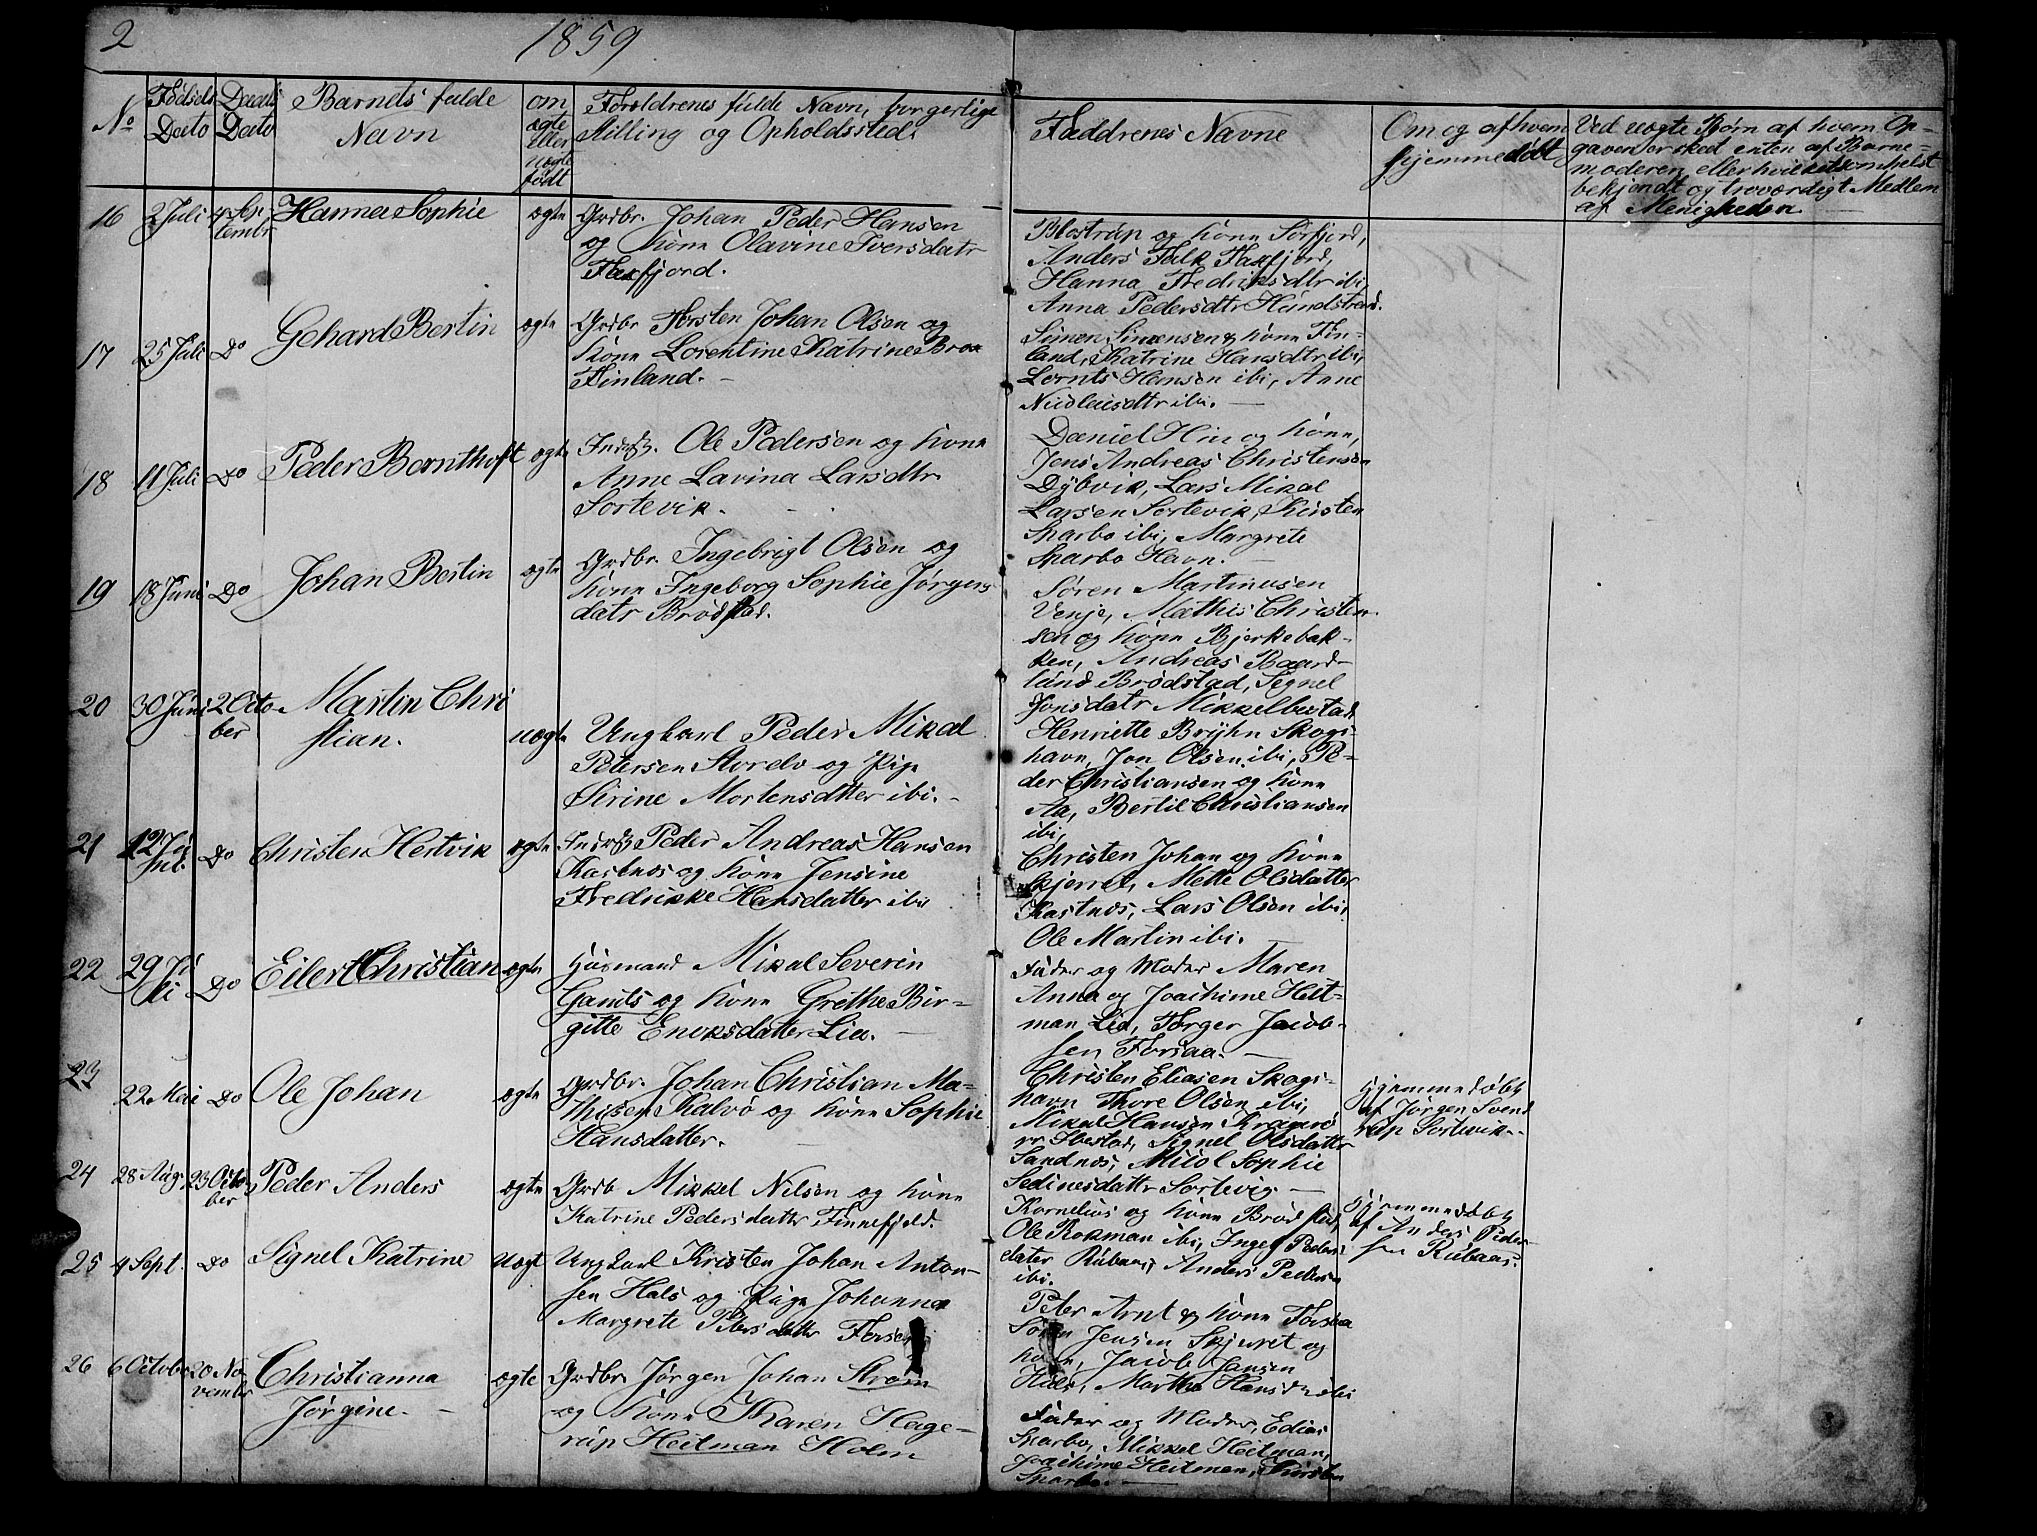 2
1859
No
Fødsels Dato
Daabs Dato
Barnets fulde Navn
om ægte eller uægte født
Forældrenes fulde Navn, borgerlige Stilling og Opholdssted.
Faddrenes Navne
Om og af hvem hjemmedøbt
Ved uægte Børn af hvem Op-
gaven er skeet enten af Barne-
moderen, eller hvilketsomhelst
bekjendt og troværdigt Medlem
af Menigheden
16 2 Juli 4 September Hanna Sophie ægte
Grdbr. Johan Peder Hansen
og Kone Olavine Iversdatr
Faxfjord.
Blostrup og Kone Sørfjord,
Anders Falk Faxfjord,
Hanna Fredriksdtr ibi,
Anna Pedersdtr Hundstrand.
17 25 Juli Do Gehard Bertin ægte
Grdbr Torsten Johan Olsen og
Kone Lorentine Katrine Brox
Finland.
Simen Simensen & Kone Fin-
land, Katrine Hansdtr ibi,
Lornts Hansen ibi, Anne
Nicolaisdtr ibi.
18 11 Juli Do Peder Bernthoft ægte
Inds. Ole Pedersen og Kone
Anne Lavina Larsdtr
Sortevik.
Daniel Hin og Kone,
Jens Andreas Christensen
Dybvik, Lars Mikal
Larsen Sortevik, Kirsten
Skarbo ibi, Margrete
Skarbo Havn.
19 18 Juni Do Johan Bertin ægte
Grdbr. Ingebrigt Olsen og
Kone Ingeborg Sophie Jørgens
datr Brødstad.
Søren Martinusen
Venje, Mathis Christen
sen og Kone Bjerkebak-
ken, Andreas Baard-
lund Brødstad, Signel
Jonsdatr Mikkelbostad
20 30 Juni 2 October Martin Chri
stian. uægte
Ungkarl Peder Mikal
Petersen Stordv og Pige
Sirine Mortensdatter ibi.
Henriette Bryhn Skogs-
havn, Jon Olsen ibi, Pe-
der Christiansen og Kone
Aa, Bertil Christiansen
ibi,
21 12 Juli Do Christen Hertvik ægte
Inds Peder Andreas Hansen
Kastnes og Kone Jensine
Fredrikke Hansdatter ibi
Christen Johan og Kone
Skjerret, Mette Olsdatter
Kastnes, Lars Olsen ibi,
Ole Martin ibi.
22 29 Juli Do Eilert Christian ægte
Husmand Mikal Severin
Gauts og Kone Grethe Bir-
gitte Enoksdatter Lia.
Fader og Moder Maren
Anna og Joachime Heit-
man Lia, Torger Jacob-
sen Forsaa.
23 22 Mai Do Ole Johan ægte
Grdbr. Johan Christian Ma-
thisen Kalvø og Kone Sophie
Hansdatter.
Christen Eliasen Skogs-
havn Thore Olsen ibi,
Mikal Hansen Krognæs
pr Ibestad, Signel Olsdatter
Sandnes, Micol Sophie
Sedinesdattr Sortevig
Hjemmedøbt
af Jørgen Svend
rup Sortevik
24 28 Aug. 23 October Peder Anders ægte
Grdb Mikkel Nilsen og Kone
Katrine Pedersdatter Finnefjeld.
Kornelius og Kone Brødstad,
Ole Rokman ibi, Inger Peders
dater Rubaas, Anders Pedersen
ibi.
Hjemmedøbt
af Anders Peder-
sen Rubaas.
25 4 Sept. Do Signel Katrine Uægt
Ungkarl Kristen Johan Anton-
sen Hals og Pige Johanna
Margrete Petersdatter
Peter Arnt & Kone Forsaa
Søren Jensen Skjerret og
Kone, Jacob Hansen
Hals, Martha Hansd ibi
26 6 October 20 November Christianna
Jørgine. ægte
Grdbr Jørgen Johan Strøm
og Kone Karen Hage-
rup Heitman Holm
Fader og Moder, Edias
Skarbo, Mikkel Heitman,
Joachime Heitman, Kirsten
Skarbo.